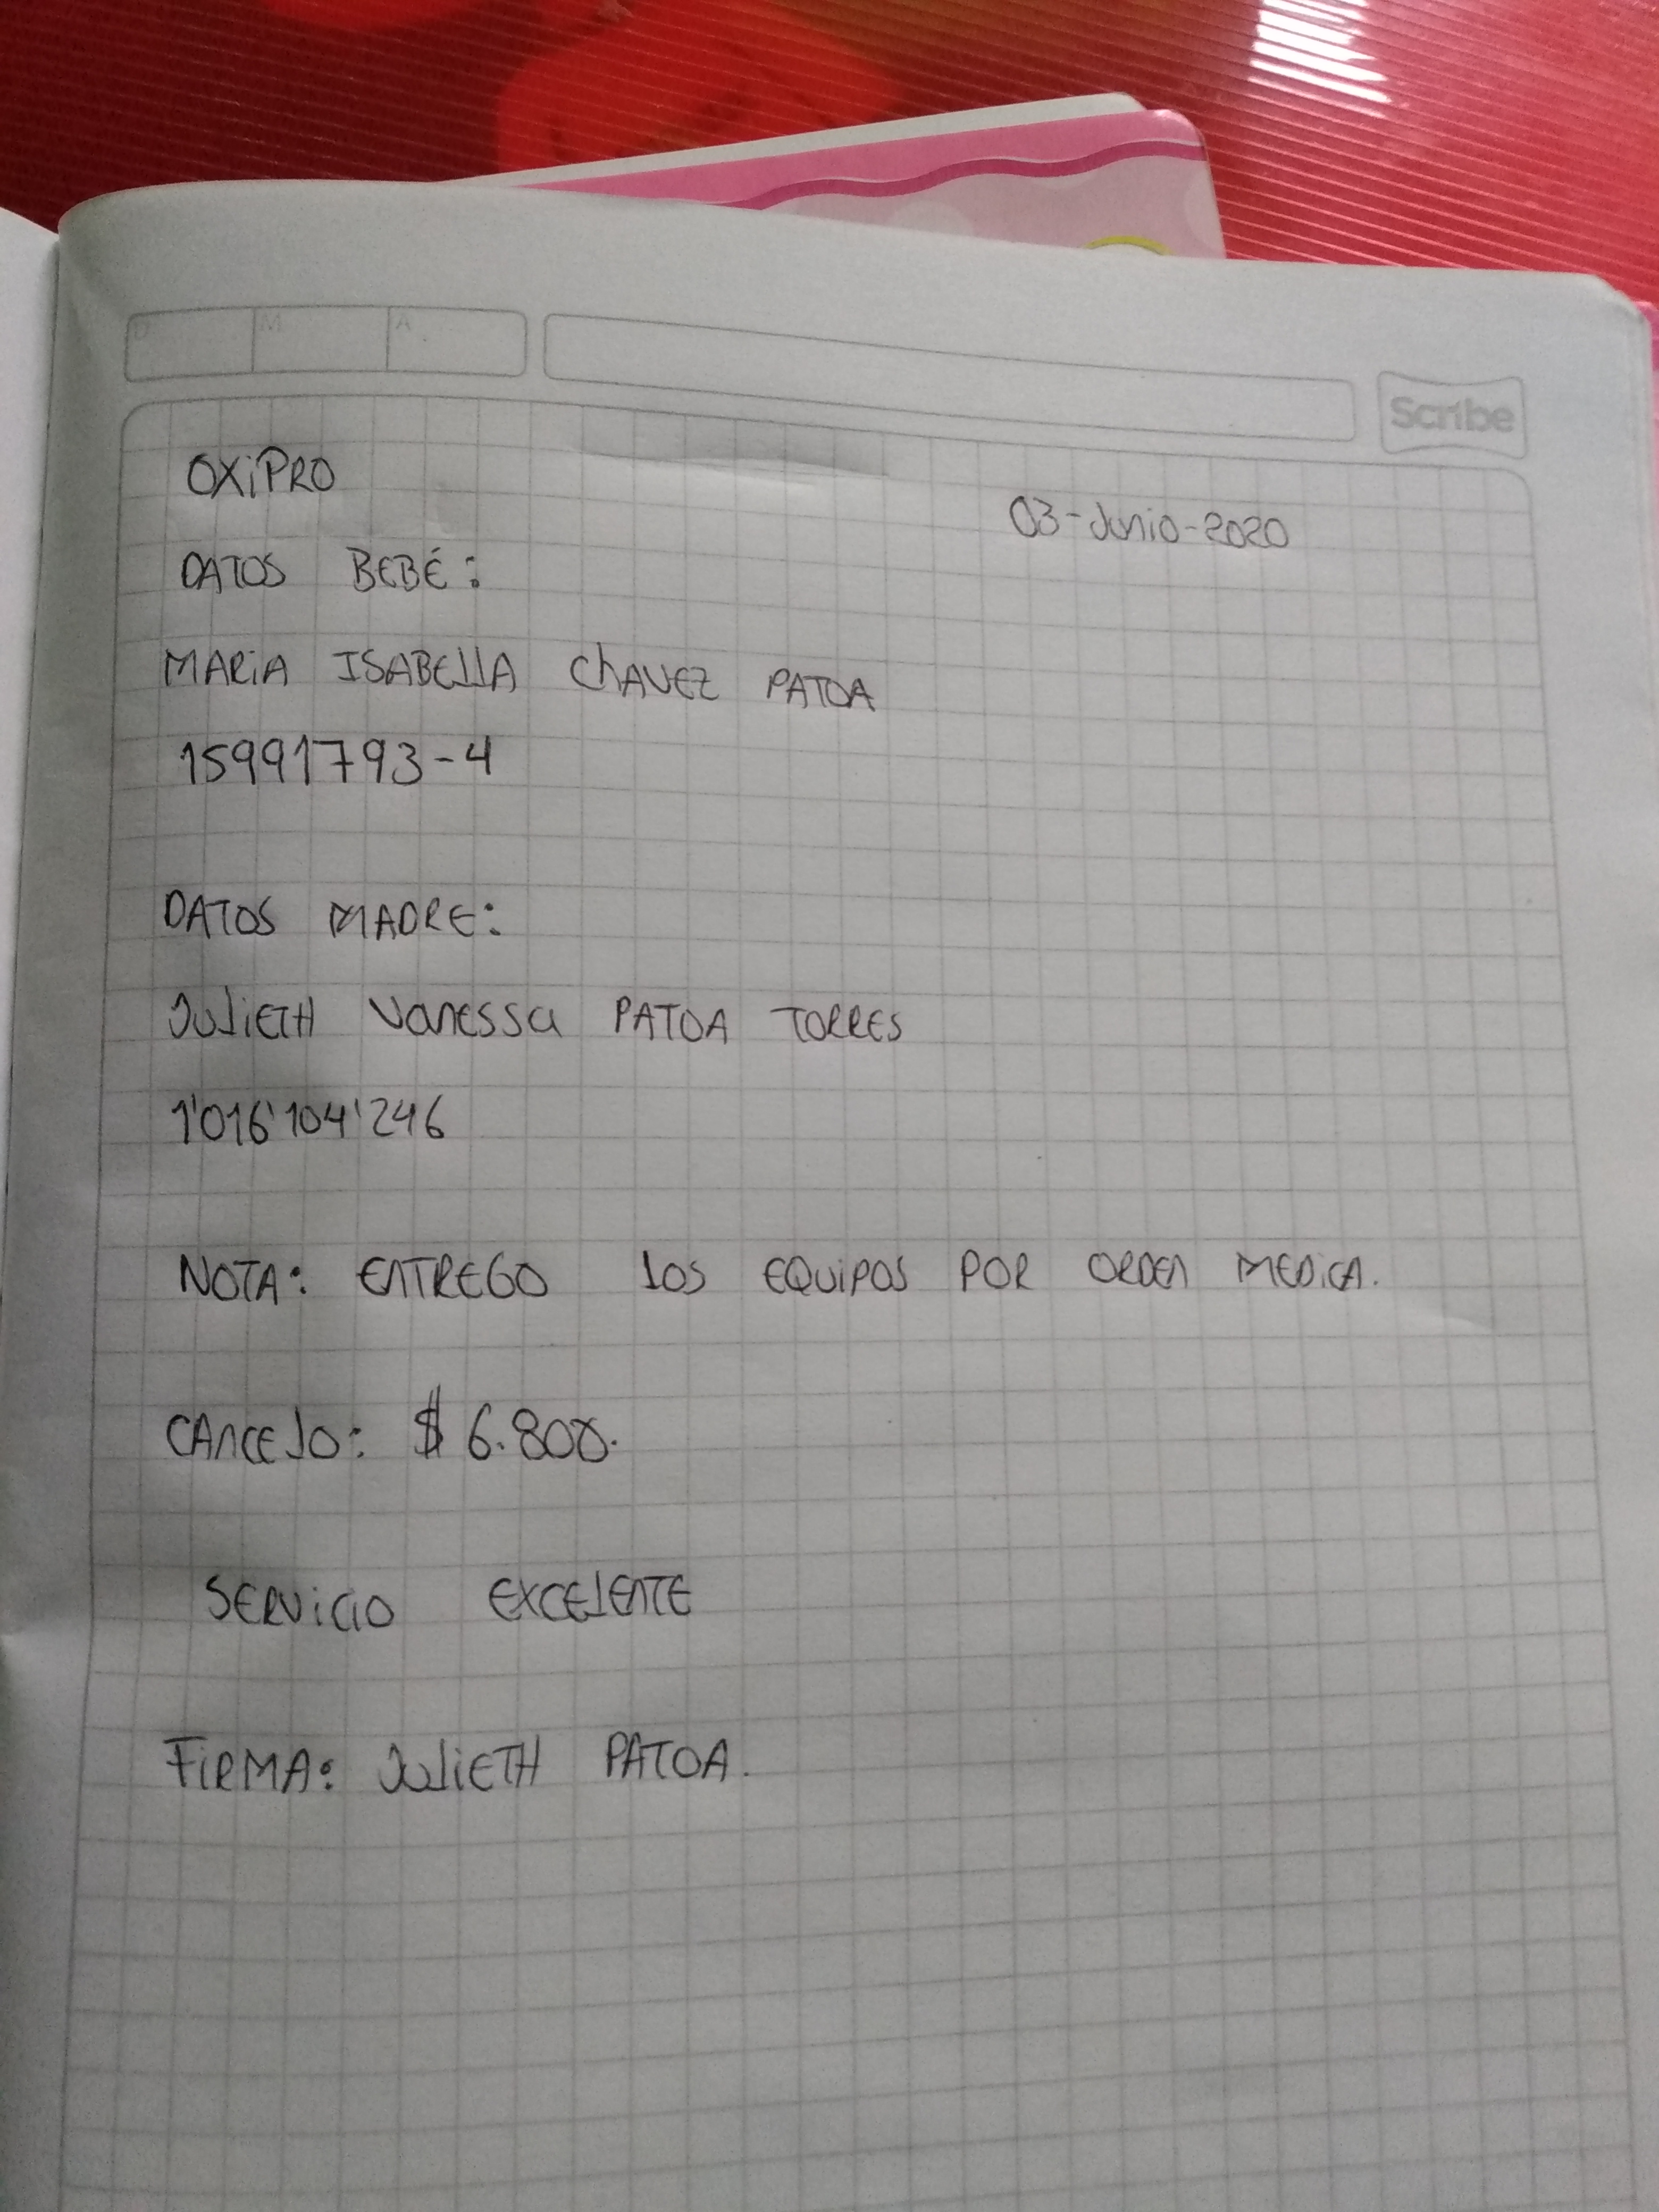 D M A
Scribe
OXiPRO
03-Junio-2020
DATOS BEBÉ:
MARiA ISABEllA ChAVEZ PATOA
15991793-4
DATOS MADRE:
JuliETH Vanessa PATOA TORRES
1'016'104'246
NOTA: ENTREGO lOS EQUIPOS POR ORDEN MEDiCA.
CANCElO: $ 6.800.
SERViCiO EXCElENTE
FiRMA: JuliETH PATOA.